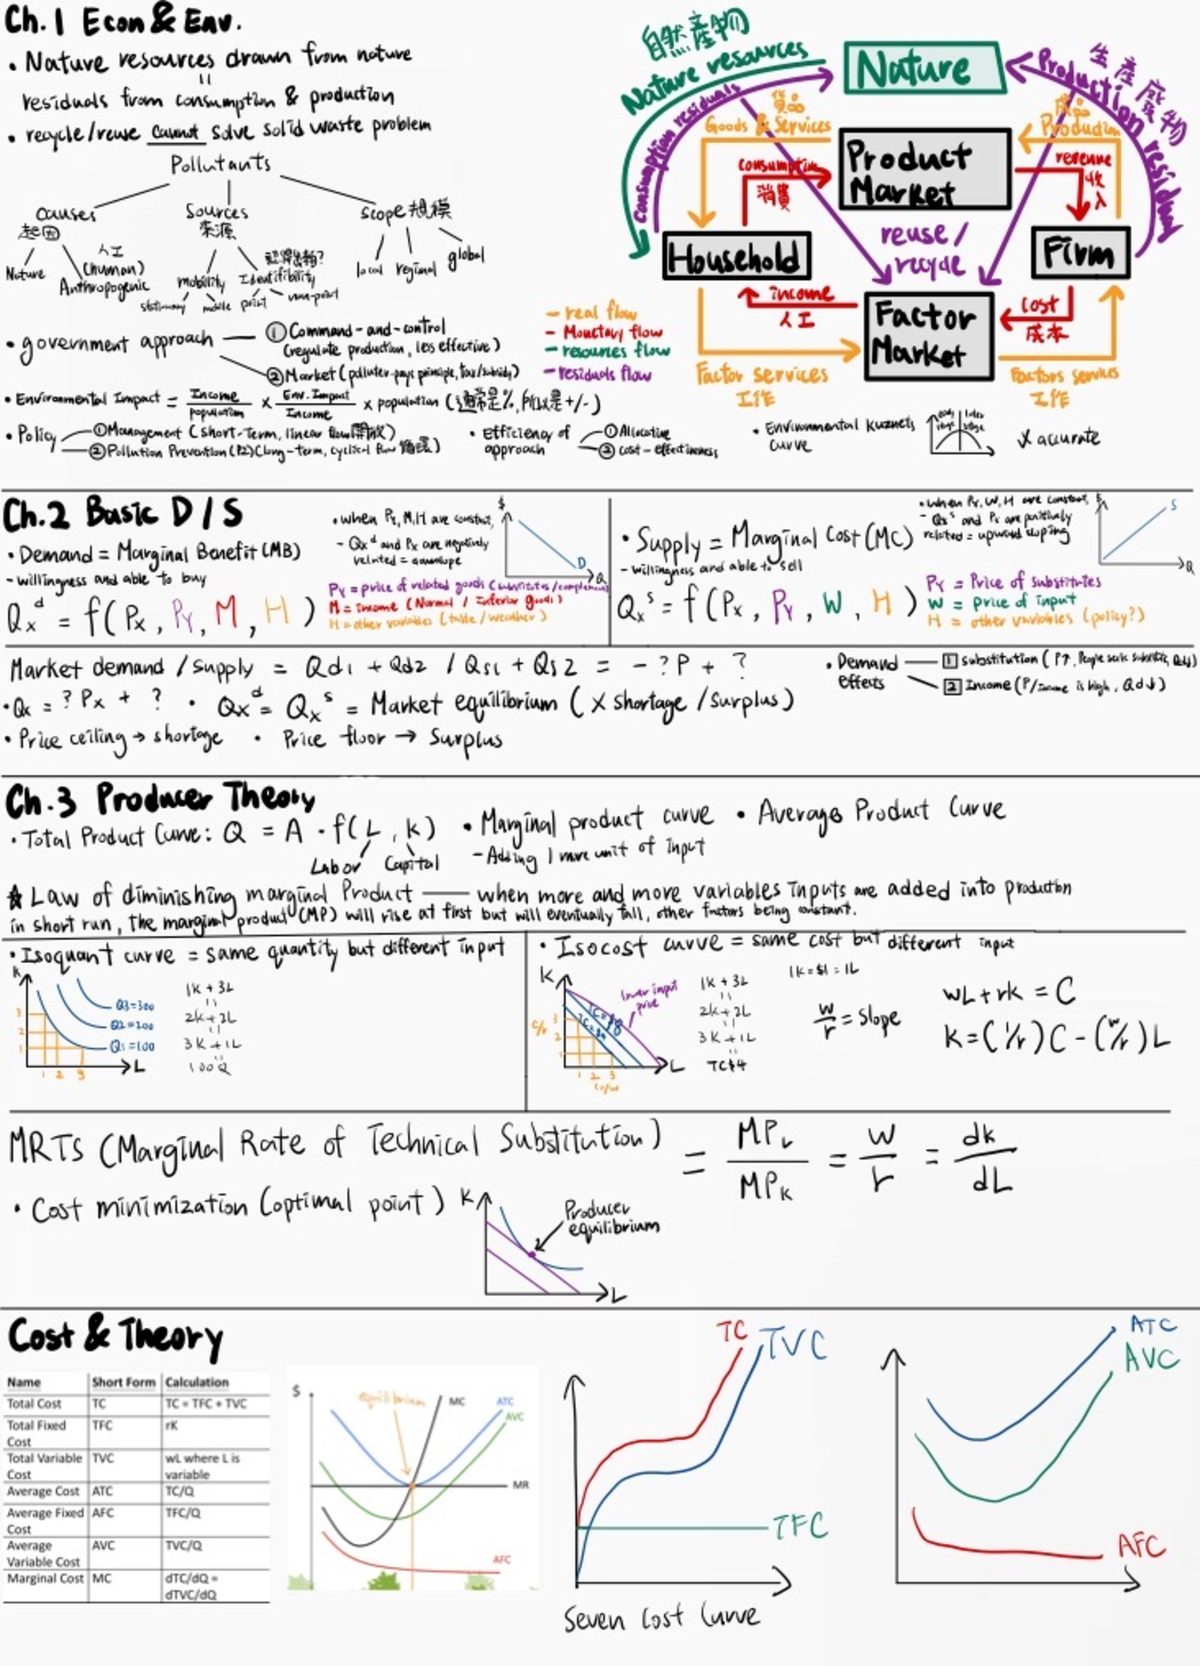 Ch.1 Econ & Env.
• Nature resources drawn from nature
=
residuals from consumption & production
• recycle/reuse cannot solve solid waste problem
Pollutants
Causes
起因
Nature
人工
(human)
Anthropogenic
Sources
來源
mobility
stationary
mobile
Identifibility
point
non-point
scope 規模
local
regional
global
• government approach
① Command-and-control
(regulate production, less effective)
② Market (polluter-pays principle, tax/subsidy)
• Environmental Impact = Income/population × Env. Impact/Income × population (通常是%, 所以是+/-)
• Policy
① Management (short-term, linear flow 開放)
② Pollution Prevention (P2) (long-term, cyclical flow 循環)
• Efficiency of approach
① Allocative
② cost-effectiveness
• Environmental kuznets curve
X accurate
自然產物
Nature resources
Consumption residuals
Nature
生產廢物
Production residual
貨品
Goods & Services
成品
Production
consumption
消費
Product Market
revenue
收入
Household
reuse/
recycle
Firm
income
人工
Factor Market
cost
成本
Factor services
工作
Factors services
工作
- real flow
- Monetary flow
- resources flow
- residuals flow
Ch.2 Basic D/S
• Demand = Marginal Benefit (MB)
- willingness and able to buy
Qxᵈ = f(Px, Py, M, H)
• when Py, M, H are constant,
- Qxᵈ and Px are negatively
related =
$
D
Q
Py = price of related goods (substitutes/complement
M = income (Normal / Inferior goods)
H = other variables (taste/weather)
• Supply = Marginal Cost (MC)
- willingness and able to sell
Qxˢ = f(Px, Py, W, H)
• when Py, W, H are constant,
- Qxˢ and Px are positively
related = upward sloping
$
S
Q
Py = Price of substitutes
W = price of input
H = other variables (policy?)
Market demand / supply = Qd1 + Qd2 / Qs1 + Qs2 = - ?P + ?
• Qx = ? Px + ?
• Qxᵈ = Qxˢ = Market equilibrium (X shortage / surplus)
• Price ceiling → shortage
• Price floor → Surplus
• Demand effects
1 substitution (P↑, People seek substitute, Qd↓)
2 Income (P/Income is high, Qd↓)
Ch.3 Producer Theory
• Total Product Curve: Q = A · f(L, K)
Labor
Capital
• Marginal product curve
- Adding 1 more unit of Input
• Average Product Curve
★ Law of diminishing marginal Product — when more and more variables Inputs are added into production
in short run, the marginal product (MP) will rise at first but will eventually fall, other factors being constant.
• Isoquant curve = same quantity but different input
K
3
2
1
1 2 3
L
Q3=300
Q2=200
Q1=100
1K + 3L
=
2K + 2L
=
3K + 1L
=
100Q
• Isocost curve = same cost but different input
K
C/r
3
2
1
1 2 3
C/w
L
TC=$8
TC=$4
lower input price
1K + 3L
=
2K + 2L
=
3K + 1L
=
TC$4
1K = $1 = 1L
w/r = slope
wL + rK = C
K = (1/r)C - (w/r)L
MRTS (Marginal Rate of Technical Substitution) = MPL/MPK = w/r = dk/dL
• Cost minimization (optimal point)
K
L
Producer
equilibrium
Cost & Theory
Name Short Form Calculation
Total Cost TC TC = TFC + TVC
Total Fixed Cost TFC rK
Total Variable Cost TVC wL where L is variable
Average Cost ATC TC/Q
Average Fixed Cost AFC TFC/Q
Average Variable Cost AVC TVC/Q
Marginal Cost MC dTC/dQ = dTVC/dQ
$
equilibrium
MC
ATC
AVC
MR
AFC
TC
TVC
TFC
Seven Cost Curve
ATC
AVC
AFC